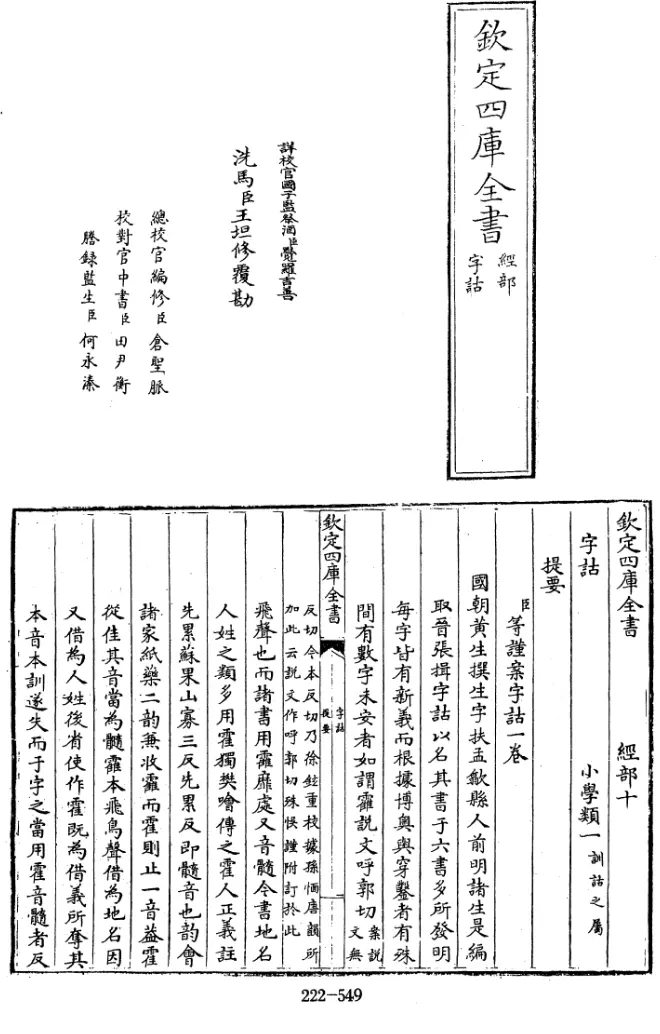 欽定四庫全書
經部
字詁
詳校官國子監祭酒臣覺羅吉善
洗馬臣王坦修覆勘
總校官編修臣倉聖脈
校對官中書臣田尹衡
謄錄監生臣何永溱
欽定四庫全書 經部十
字詁 小學類一 訓詁之屬
提要
臣等謹案字詁一卷
國朝黃生撰生字扶孟歙縣人前明諸生是編
取晉張揖字詁以名其書于六書多所發明
每字皆有新義而根據博奧與穿鑿者有殊
間有數字未安者如謂靃說文呼郭切 案說文無
反切今本反切乃徐鉉重校據孫愐唐韻所
加此云說文作呼郭切殊悮謹附訂於此
欽定四庫全書
字詁
提要
一
飛聲也而諸書用靃靡處又音髓今書地名
人姓之類多用霍獨樊噲傳之霍人正義註
先累蘇果山寡三反先累反即髓音也韵會
諸家紙藥二韵兼收靃而霍則止一音葢霍
從隹其音當為髓靃本飛鳥聲借為地名因
又借為人姓後省使作霍既為借義所奪其
本音本訓遂失而于字之當用霍音髓者反
222-549